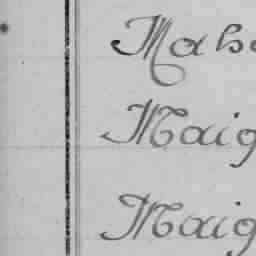 Mabo
Maig
Maig